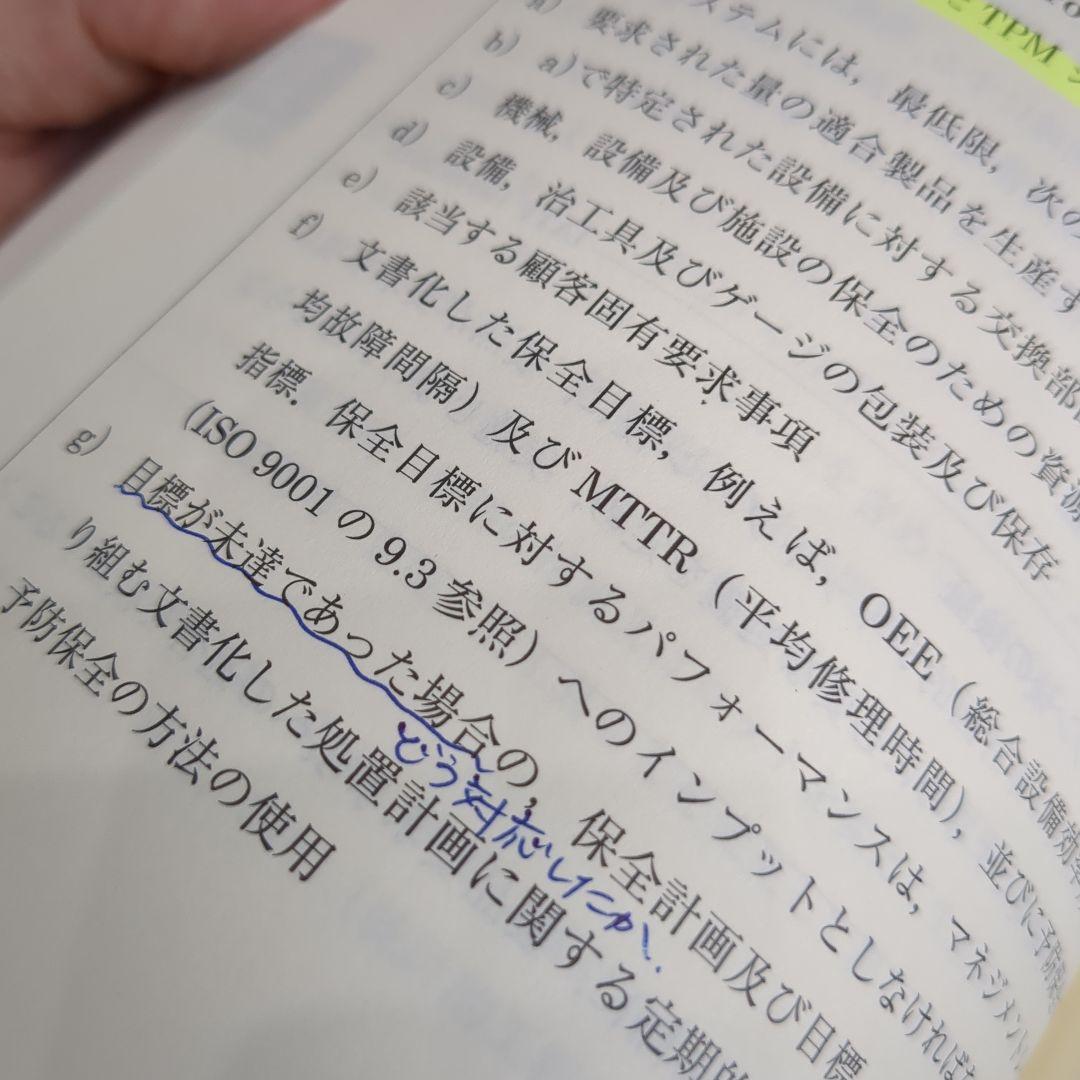 TPM
ステムには，最低限，次の
要求された量の適合製品を生産す
b) a)で特定された設備に対する交換部
c) 機械，設備及び施設の保全のための資源
d) 設備，治工具及びゲージの包装及び保存
e) 該当する顧客固有要求事項
f) 文書化した保全目標，例えば，OEE（総合設備効率
均故障間隔）及び MTTR（平均修理時間），並びに予防保
指標．保全目標に対するパフォーマンスは，マネジメント
(ISO 9001 の 9.3 参照）へのインプットとしなければ
g) 目標が未達であった場合の，保全計画及び目標
どう対応したか
り組む文書化した処置計画に関する定期的
予防保全の方法の使用